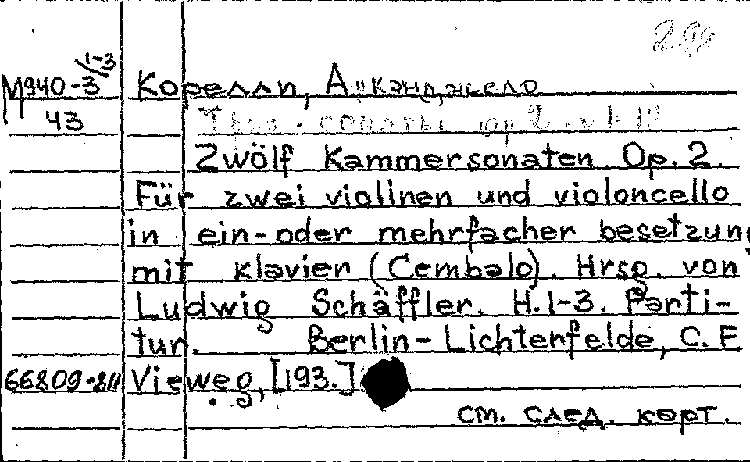 М940-3/1-3 Корелли, Арканджело
43
Zwölf Kammersonaten Op. 2.
Für zwei violinen und violoncello
in ein-oder mehrfacher besetzung
mit klavier (Cembalo). Hrsg. von
Ludwig Schäffler. H.1-3. Parti-
tur. Berlin-Lichterfelde, C. F.
Vieweg, [193.]
см. след. карт.